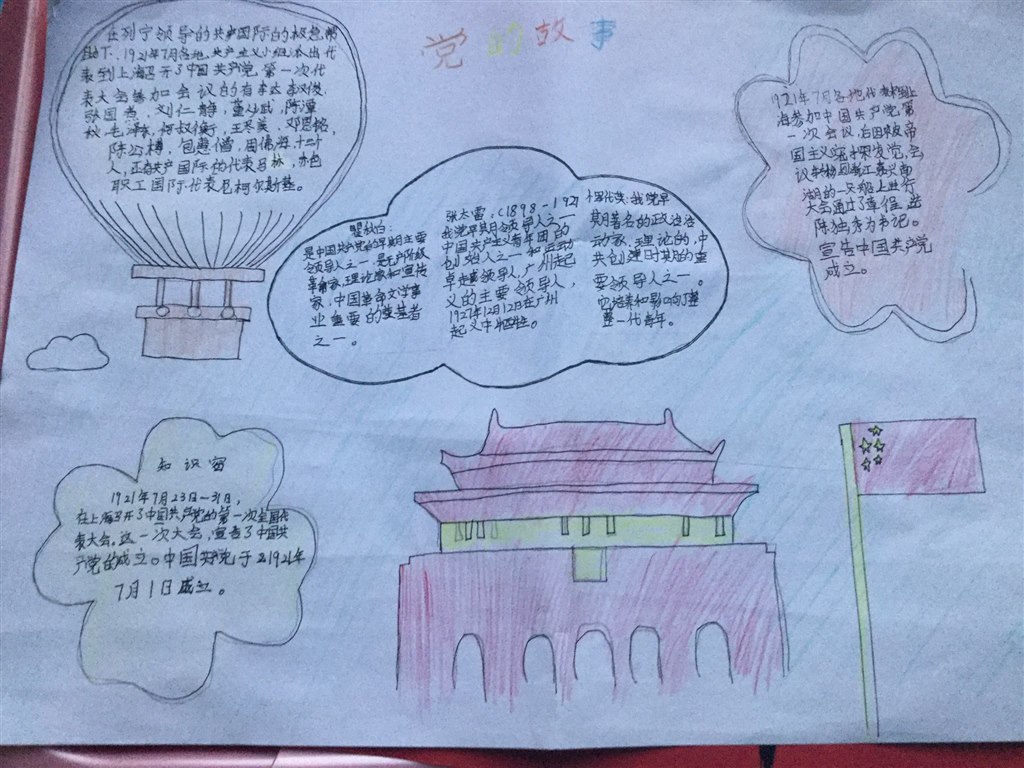 党的故事
在列宁领导的共产国际的极色帮
助下、1921年7月各地共产主义小组派出代
表到上海召开了中国共产党第一次代
表大会参加会议的有李达李汉俊、
张国焘、刘仁静、董必武、陈潭
秋毛泽东、何叔衡、王尽美、邓恩铭、
陈公博、包惠僧、周佛海十二个
人，共产国际的代表马林，赤色
职工国际代表尼柯尔斯基。
瞿秋白：
是中国共产党的早期主要
领导人之一，是无产阶级
革命家，理论家和宣传
家，中国革命文学事
业重要的奠基者
之一。
张太雷：(1898-192
我党早期领导人之一
中国共产主义青年团的
创始人之一和
卓越领导人，广州起
义的主要领导人，
1927年12月12日在广州
起义中牺牲。
恽代英：我党早
期著名的政治活
动家、理论的，中
共创建时期的重
要领导人之一。
培养和影响了整
整一代青年。
1921年7月各地代表到上
海参加中国共产党第
一次会议，后因被帝
国主义密探发觉，会
议转移到浙江嘉兴南
湖的一只船上进行
大会通过了章程，选
陈独秀为书记。
宣告中国共产党
成立。
知识窗
1921年7月23日—31日，
在上海召开了中国共产党的第一次全国代
表大会。这一次大会，宣告了中国共
产党的成立。中国共产党于1921年
7月1日成立。